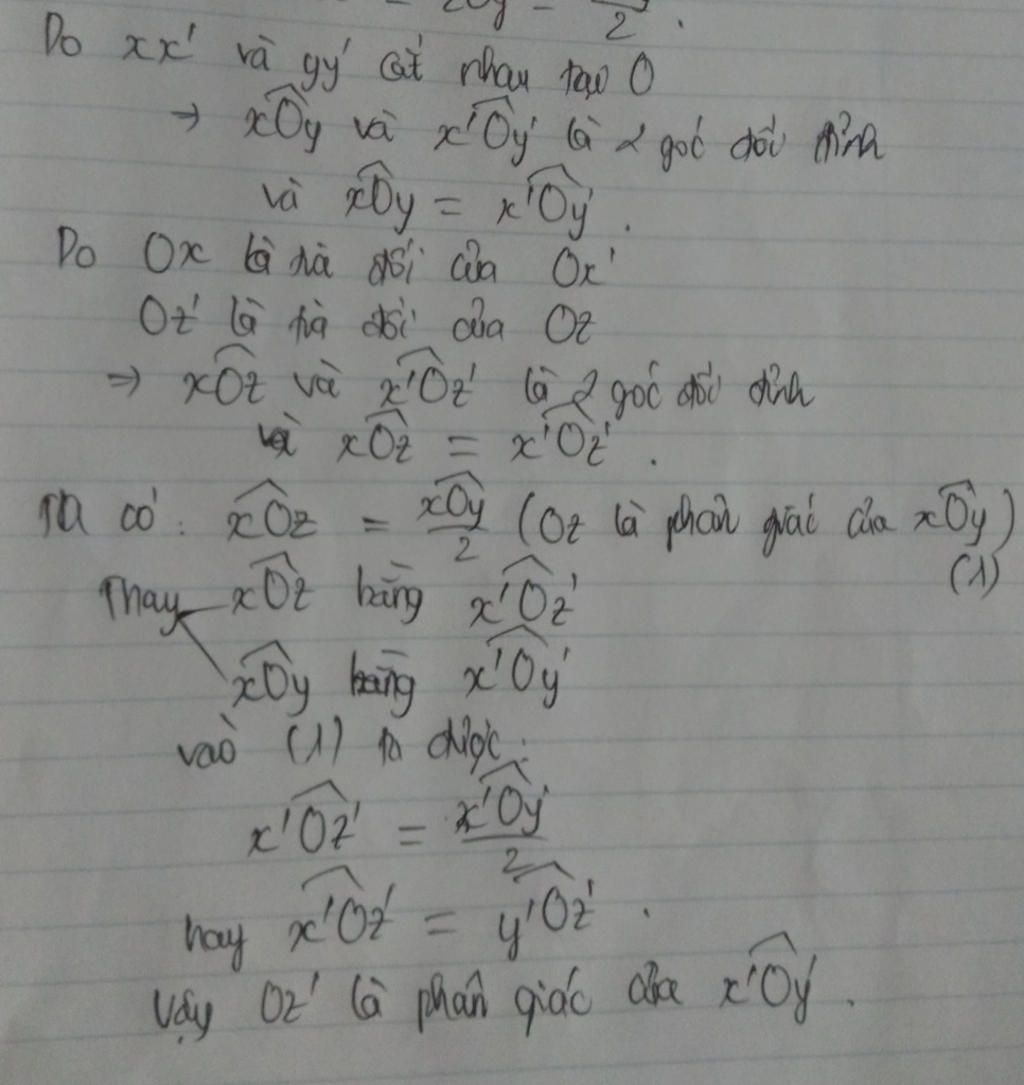 = zOy = 2 .
Do xx' và yy' cắt nhau tạo O
→ xOy và x'Oy' là 2 góc đối đỉnh
và xOy = x'Oy' .
Do Ox là tia đối của Ox'
Oz' là tia đối của Oz
⇒ xOz và x'Oz' là 2 góc đối đỉnh
và xOz = x'Oz' .
Ta có : xOz = xOy/2 (Oz là phân giác của xOy)
(1)
Thay xOz bằng x'Oz'
xOy bằng x'Oy'
vào (1) ta được :
x'Oz' = x'Oy'/2
hay x'Oz' = y'Oz' .
Vậy Oz' là phân giác của x'Oy' .